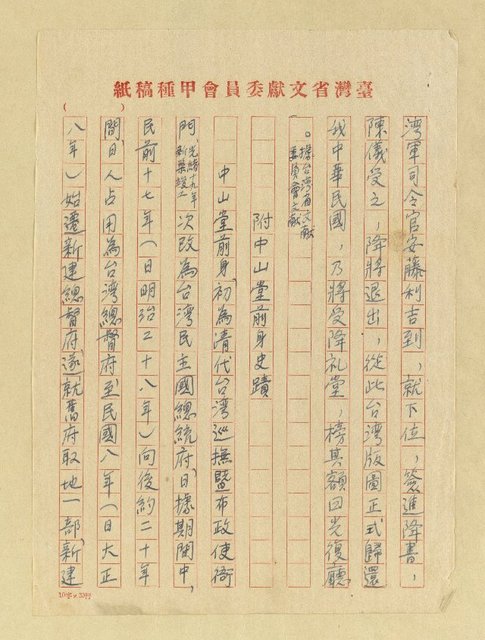 臺灣省文獻委員會甲種稿紙
灣軍司令官安藤利吉到，就下位，簽進降書，
陳儀受之，降將退出，從此台灣版圖正式歸還
我中華民國，乃將受降礼堂，榜其額曰光復廳
。據台灣省文獻委員會文獻
附中山堂前身史蹟
中山堂前身，初為清代台灣巡撫暨布政使衙
門光緒十九年新築竣工次改為台灣民主國總統府，日據期間中，
民前十七年（日明治二十八年）向後約二十年
間，日人占用為台灣總督府，至民國八年（日大正
八年）始遷新建總督府，遂就舊府取地一部，新建